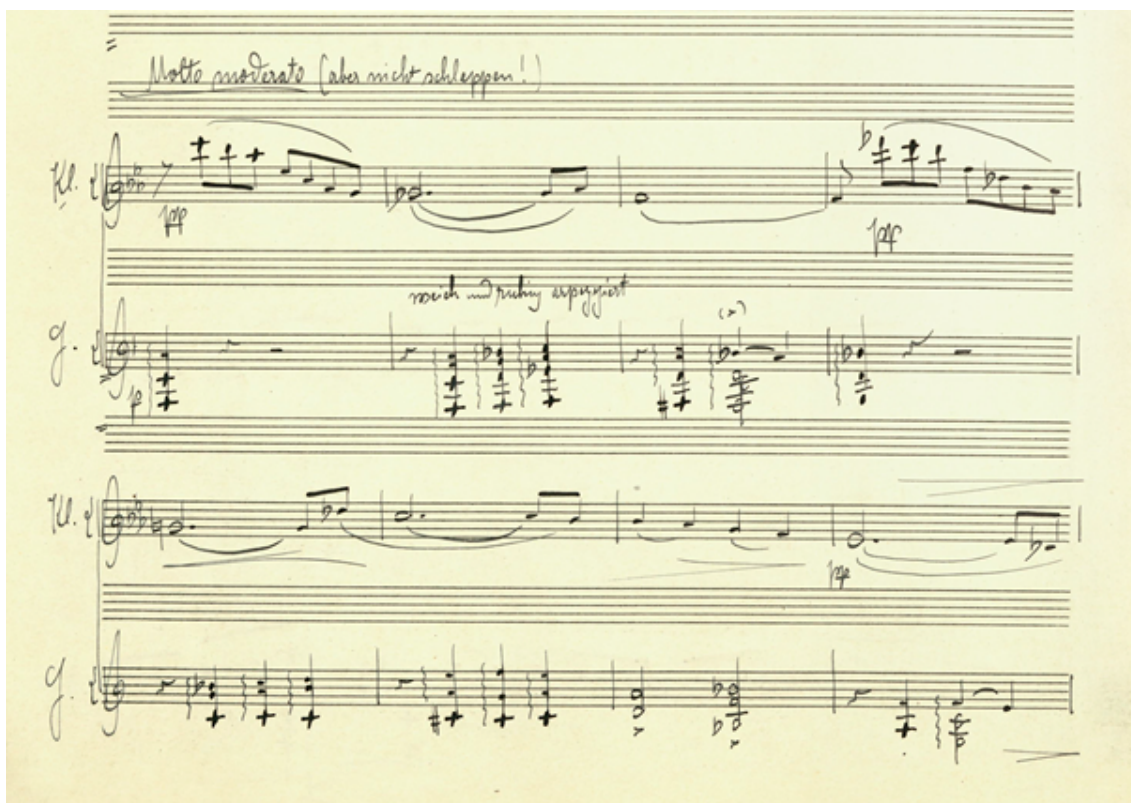 Molto moderato (aber nicht schleppen!)
Kl.
pp
pp
weich und ruhig arpeggiert
G.
p
Kl.
pp
G.